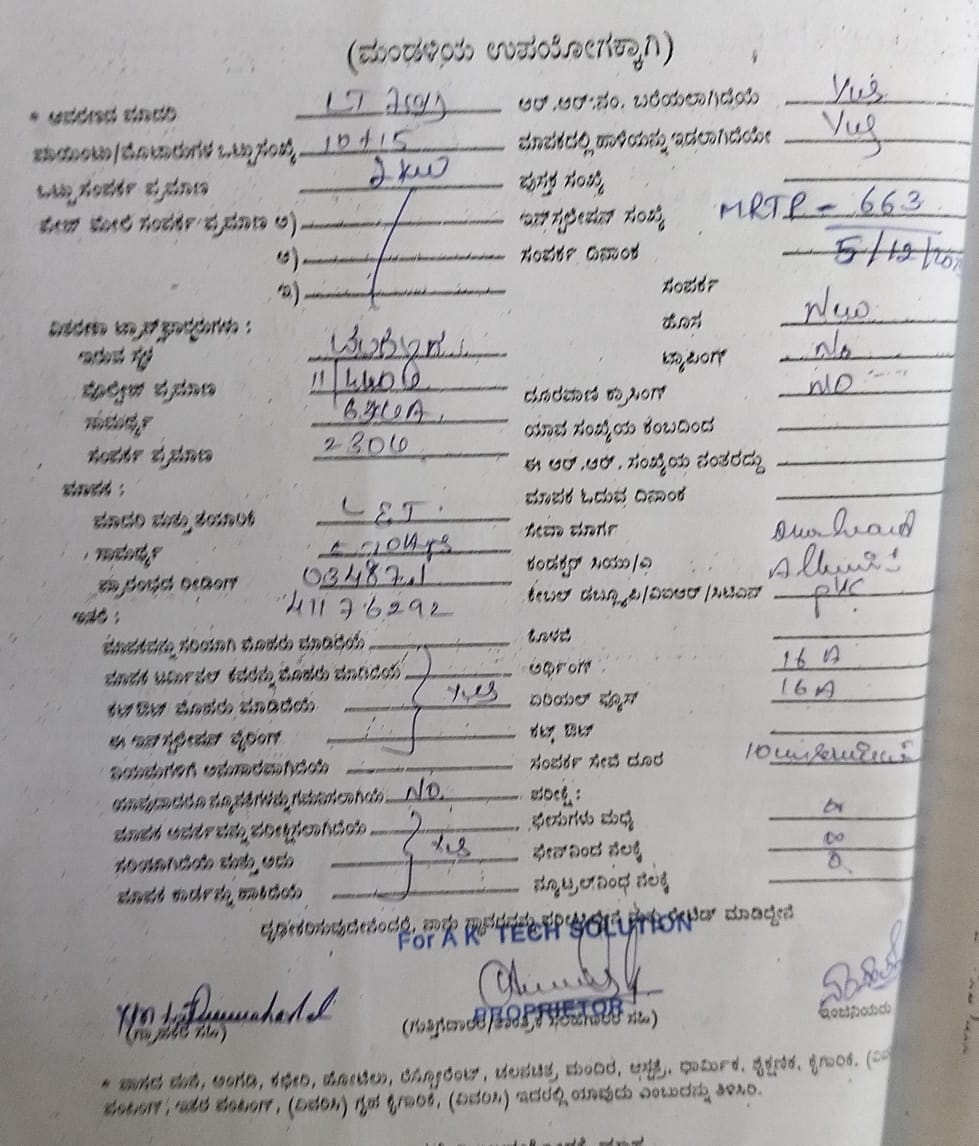 (ಮಂಡಳಿಯ ಉಪಯೋಗಕ್ಕಾಗಿ)
* ಆವರಣದ ಮಾದರಿ LT ಆರ್.ಆರ್.ನಂ. ಬರೆಯಲಾಗಿದೆಯೆ Yes
ಪಾಯಿಂಟು/ಮೋಟಾರುಗಳ ಒಟ್ಟು ಸಂಖ್ಯೆ 10+15 ಮಾಪಕದಲ್ಲಿ ಹಾಳೆಯನ್ನು ಇಡಲಾಗಿದೆಯೇ Yes
ಒಟ್ಟು ಸಂಪರ್ಕ ಪ್ರಮಾಣ 2 KW ಪುಸ್ತಕ ಸಂಖ್ಯೆ
ಪೇಜ್ ಮೇಲೆ ಸಂಪರ್ಕ ಪ್ರಮಾಣ ಅ) ಇನ್‌ಸ್ಟಲೇಷನ್ ಸಂಖ್ಯೆ MRTP - 663
ಆ) ಸಂಪರ್ಕ ದಿನಾಂಕ 5/12/20
ಇ) ಸಂಪರ್ಕ
ವಿತರಣಾ ಟ್ರಾನ್ಸ್‌ಫಾರ್ಮರುಗಳು : ಹೊಸ New
ಇರುವ ಸ್ಥಳ ಟ್ಯಾಪಿಂಗ್ No
ವೋಲ್ಟೇಜ್ ಪ್ರಮಾಣ 11/440V ದೂರವಾಣಿ ಕ್ರಾಸಿಂಗ್ NO
ಸಾಮರ್ಥ್ಯ 63KVA ಯಾವ ಸಂಖ್ಯೆಯ ಕಂಬದಿಂದ
ಸಂಪರ್ಕ ಪ್ರಮಾಣ 230V ಈ ಆರ್.ಆರ್. ಸಂಖ್ಯೆಯ ನಂತರದ್ದು
ಮಾಪಕ : ಮಾಪಕ ಓದುವ ದಿನಾಂಕ
ಮಾದರಿ ಮತ್ತು ತಯಾರಿಕೆ L&T ಸೇವಾ ಮಾರ್ಗ Overhead
ಸಾಮರ್ಥ್ಯ ಕಂಡಕ್ಟರ್ ಸಿಯು/ಎ
ಪ್ರಾರಂಭದ ರೀಡಿಂಗ್ 03487.1 ಕೇಬಲ್ ಡಬ್ಲ್ಯೂಪಿ/ವಿಐಆರ್/ಸಿಟಿಎಸ್ PVC
ಇತರೆ : 41176292
ಮಾಪಕವನ್ನು ಸರಿಯಾಗಿ ಮೊಹರು ಮಾಡಿದೆಯೆ ಒಳಪಡಿ
ಮಾಪಕ ಟರ್ಮಿನಲ್ ಕವರನ್ನು ಮೊಹರು ಮಾಡಿದೆಯೆ ಅರ್ಥಿಂಗ್ 16 A
ಕಟ್‌ಔಟ್ ಮೊಹರು ಮಾಡಿದೆಯೆ Yes ಏರಿಯಲ್ ಫ್ಯೂಸ್ 16A
ಈ ಇನ್‌ಸ್ಟಲೇಷನ್ ವೈರಿಂಗ್ ಕಟ್ ಔಟ್
ನಿಯಮಗಳಿಗೆ ಅನುಸಾರವಾಗಿದೆಯೆ ಸಂಪರ್ಕ ಸೇವೆ ದೂರ 10
ಯಾವುದಾದರೂ ನ್ಯೂನತೆಗಳನ್ನು ಗಮನಿಸಲಾಗಿದೆಯೆ NO. ಪರೀಕ್ಷೆ :
ಮಾಪಕ ಆವರ್ತವನ್ನು ಪರೀಕ್ಷಿಸಲಾಗಿದೆಯೆ ಫೇಸುಗಳು ಮಧ್ಯೆ ∞
ಸರಿಯಾಗಿದೆಯೆ ಮತ್ತು ಅದು Yes ಫೇಸ್‌ನಿಂದ ನೆಲಕ್ಕೆ ∞
ಮಾಪಕ ಕಾರ್ಡನ್ನು ಹಾಕಿದೆಯೆ ನ್ಯೂಟ್ರಲ್‌ನಿಂದ ನೆಲಕ್ಕೆ 0
ದೃಢೀಕರಿಸುವುದೇನೆಂದರೆ, ನಾನು ಸ್ಥಾವರವನ್ನು ಪರೀಕ್ಷಿಸಿದ್ದೇನೆ ಮಾಡಿದ್ದೇನೆ
For A K TECH SOLUTION
PROPRIETOR
(ಗ್ರಾಹಕರ ಸಹಿ) ಇಂಜಿನಿಯರು
* ವಾಸದ ಮನೆ, ಅಂಗಡಿ, ಕಛೇರಿ, ಹೋಟೆಲು, ರೆಸ್ಟೋರೆಂಟ್, ಚಲನಚಿತ್ರ, ಮಂದಿರ, ಆಸ್ಪತ್ರೆ, ಧಾರ್ಮಿಕ, ಶೈಕ್ಷಣಿಕ, ಕೈಗಾರಿಕೆ,
ಪಂಪಿಂಗ್, ಇತರೆ ಪಂಪಿಂಗ್, (ವಿವರಿಸಿ) ಗೃಹ ಕೈಗಾರಿಕೆ, (ವಿವರಿಸಿ) ಇದರಲ್ಲಿ ಯಾವುದು ಎಂಬುದನ್ನು ತಿಳಿಸಿರಿ.